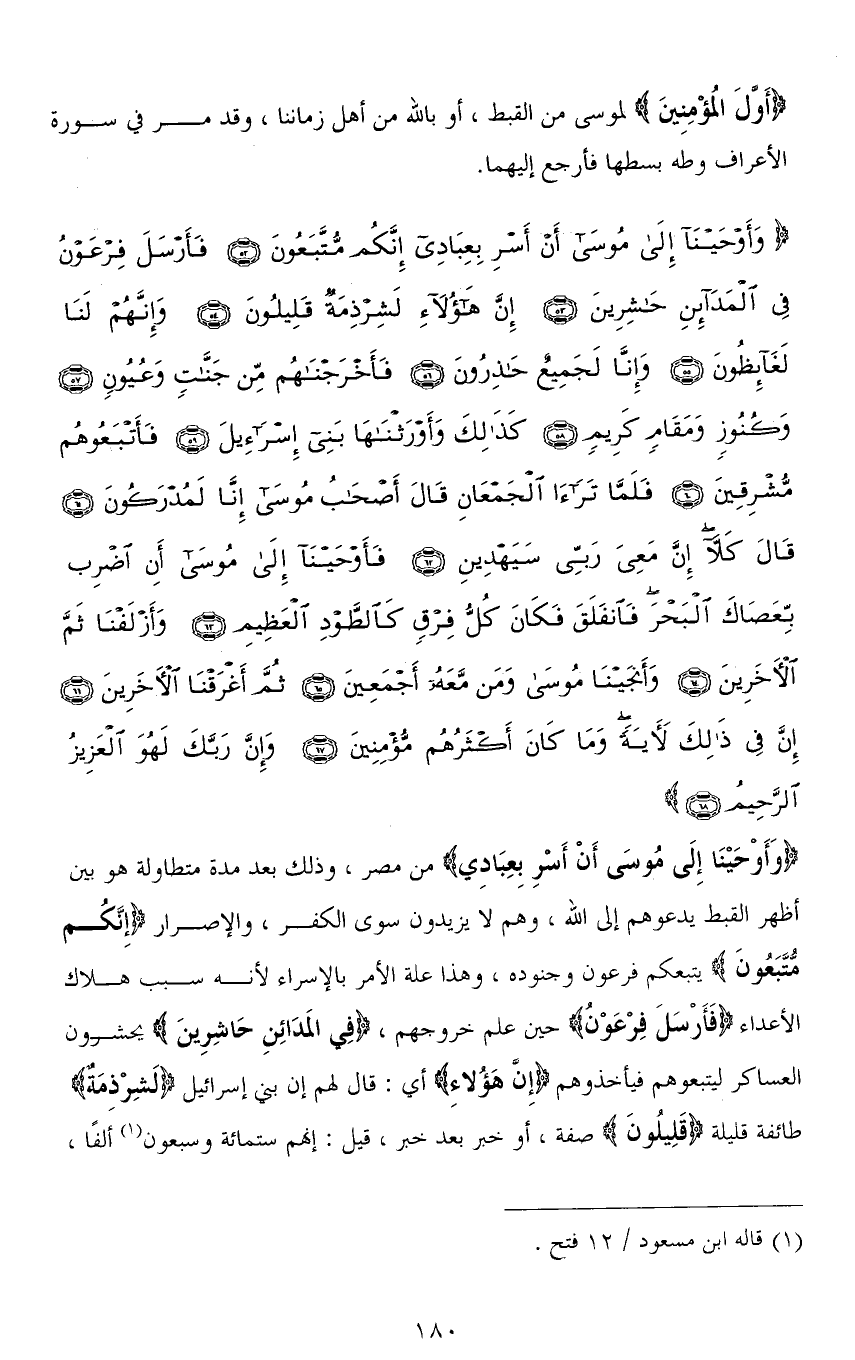 ﴿أَوَّلَ الْمُؤْمِنِينَ﴾ لموسى من القبط ، أو بالله من أهل زماننا ، وقد مـــر في ســورة
الأعراف وطه بسطها فأرجع إليهما.
﴿ وَأَوْحَيْنَآ إِلَىٰ مُوسَىٰٓ أَنْ أَسْرِ بِعِبَادِىٓ إِنَّكُم مُّتَّبَعُونَ ۝٥٢ فَأَرْسَلَ فِرْعَوْنُ
فِى ٱلْمَدَآئِنِ حَٰشِرِينَ ۝٥٣ إِنَّ هَٰٓؤُلَآءِ لَشِرْذِمَةٌ قَلِيلُونَ ۝٥٤ وَإِنَّهُمْ لَنَا
لَغَآئِظُونَ ۝٥٥ وَإِنَّا لَجَمِيعٌ حَٰذِرُونَ ۝٥٦ فَأَخْرَجْنَٰهُم مِّن جَنَّٰتٍ وَعُيُونٍ ۝٥٧
وَكُنُوزٍ وَمَقَامٍ كَرِيمٍ ۝٥٨ كَذَٰلِكَ وَأَوْرَثْنَٰهَا بَنِىٓ إِسْرَٰٓءِيلَ ۝٥٩ فَأَتْبَعُوهُم
مُّشْرِقِينَ ۝٦٠ فَلَمَّا تَرَٰٓءَا ٱلْجَمْعَانِ قَالَ أَصْحَٰبُ مُوسَىٰٓ إِنَّا لَمُدْرَكُونَ ۝٦١
قَالَ كَلَّآ ۖ إِنَّ مَعِىَ رَبِّى سَيَهْدِينِ ۝٦٢ فَأَوْحَيْنَآ إِلَىٰ مُوسَىٰٓ أَنِ ٱضْرِب
بِّعَصَاكَ ٱلْبَحْرَ ۖ فَٱنفَلَقَ فَكَانَ كُلُّ فِرْقٍ كَٱلطَّوْدِ ٱلْعَظِيمِ ۝٦٣ وَأَزْلَفْنَا ثَمَّ
ٱلْأَخَرِينَ ۝٦٤ وَأَنجَيْنَا مُوسَىٰ وَمَن مَّعَهُۥٓ أَجْمَعِينَ ۝٦٥ ثُمَّ أَغْرَقْنَا ٱلْأَخَرِينَ ۝٦٦
إِنَّ فِى ذَٰلِكَ لَأَيَةً ۖ وَمَا كَانَ أَكْثَرُهُم مُّؤْمِنِينَ ۝٦٧ وَإِنَّ رَبَّكَ لَهُوَ ٱلْعَزِيزُ
ٱلرَّحِيمُ ۝٦٨ ﴾
﴿وَأَوْحَيْنَا إِلَى مُوسَى أَنْ أَسْرِ بِعِبَادِي﴾ من مصر ، وذلك بعد مدة متطاولة هو بين
أظهر القبط يدعوهم إلى الله ، وهم لا يزيدون سوى الكفــر ، والإصــرار ﴿إِنَّكُــم
مُّتَّبَعُونَ ﴾ يتبعكم فرعون وجنوده ، وهذا علة الأمر بالإسراء لأنــه ســبب هــلاك
الأعداء ﴿فَأَرْسَلَ فِرْعَوْنُ﴾ حين علم خروجهم ، ﴿فِي الْمَدَائِنِ حَاشِرِينَ ﴾ يحشـرون
العساكر ليتبعوهم فيأخذوهم ﴿إِنَّ هَؤُلاءِ﴾ أي : قال لهم إن بني إسرائيل ﴿لَشِرْذِمَةٌ﴾
طائفة قليلة ﴿قَلِيلُونَ ﴾ صفة ، أو خبر بعد خبر ، قيل : إنهم ستمائة وسبعون(١) ألفًا ،
(١) قاله ابن مسعود / ١٢ فتح .
١٨٠